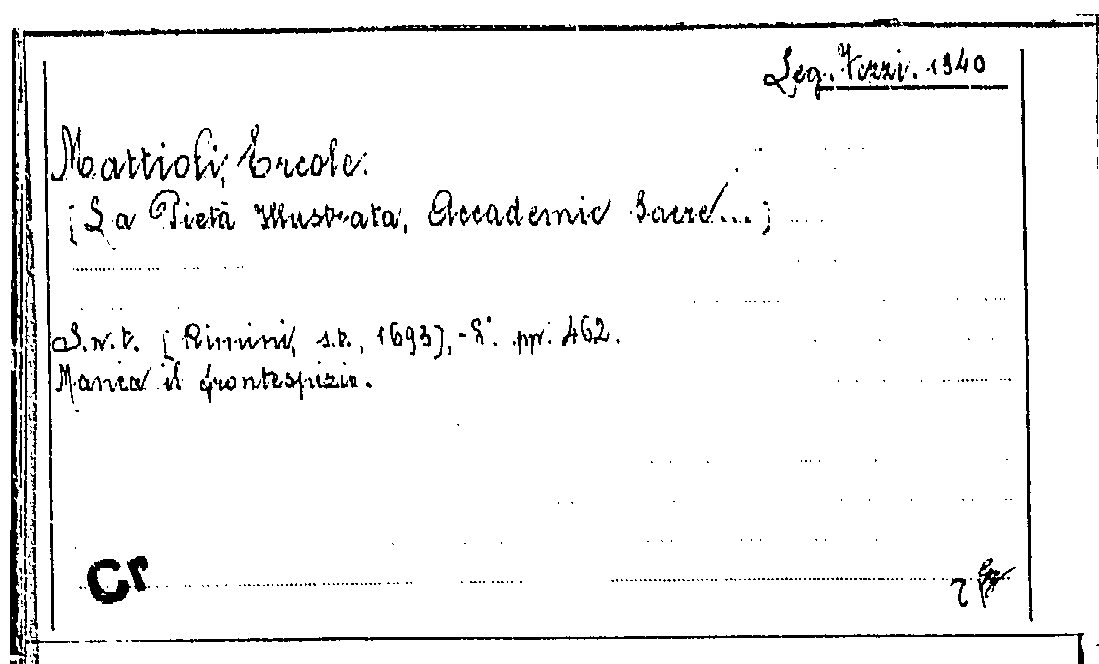 Leg. Vezzi. 1940
Mattioli, Ercole.
[La Pietà Illustrata, Accademie Sacre...]
S.n.t. [Rimini, s.t., 1693], -8°. pp. 462.
Manca il frontespizio.
Cr